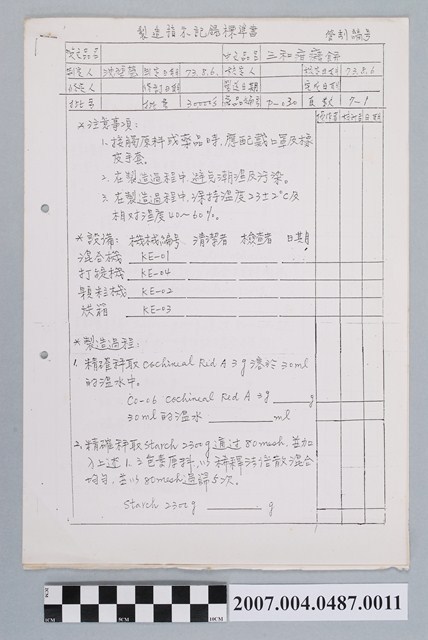 製造指示記錄標準書
管制編號
73.8.6.
73.8.6
製造日期
批號
批量
30000
產品編號
P-030
頁數
7-1
*注意事項:
1.接觸原料或藥品時,應配戴口罩及橡
皮手套.
2.在製造過程中避免潮濕及污染.
3.在製造過程中,保持溫度23±2°C及
相對濕度40~60%.
*設備: 機械編號 清潔者 檢查者 日期
混合機 KE-01
打錠機 KE-04
顆粒機 KE-02
烘箱 KE-03
*製造過程:
1.精確秤取 Cochineal Red A 3g溶於30ml
的溫水中.
Co-06 Cochineal Red A 3g g
30ml的溫水 ml
2.精確秤取Starch 2300g通過80mesh,並加
入上述1.之色素原料,以稀釋法倍散混合
均勻,並以80mesh過篩5次.
Starch 2300g g
1CM 5CM 10CM
2007.004.0487.0011